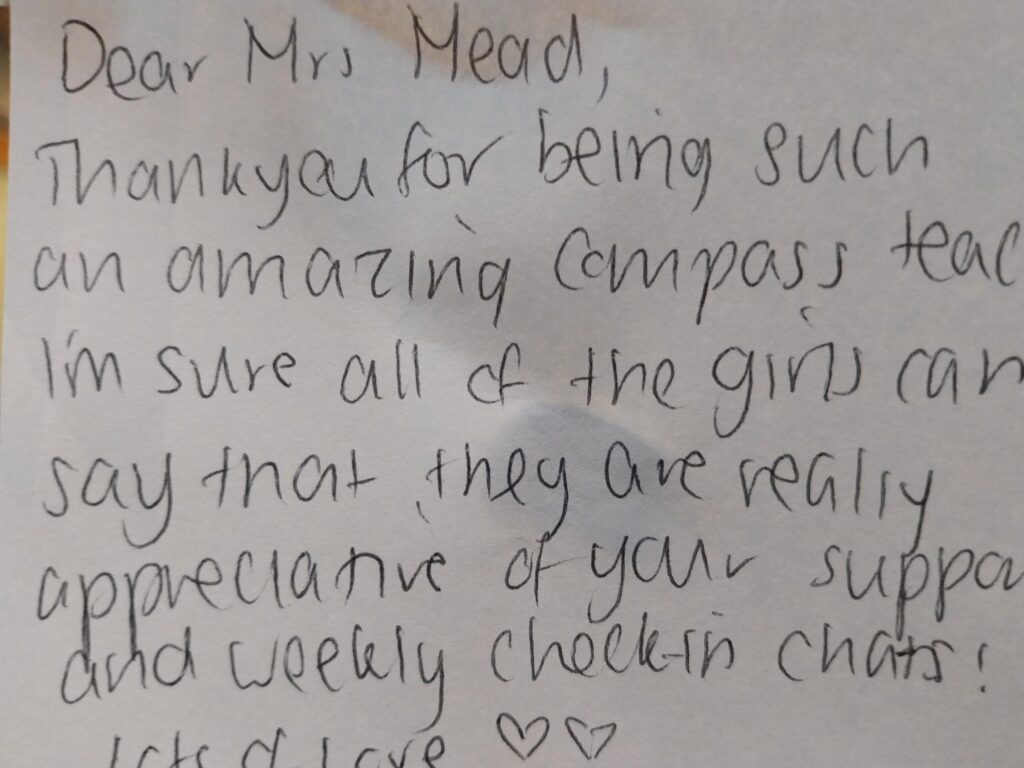 Dear Mrs Mead,
Thankyou for being such
an amazing Compass teac
I'm sure all of the girls can
say that they are really
appreciative of your suppo
and weekly check-in chats!
Lots of Love ♡♡